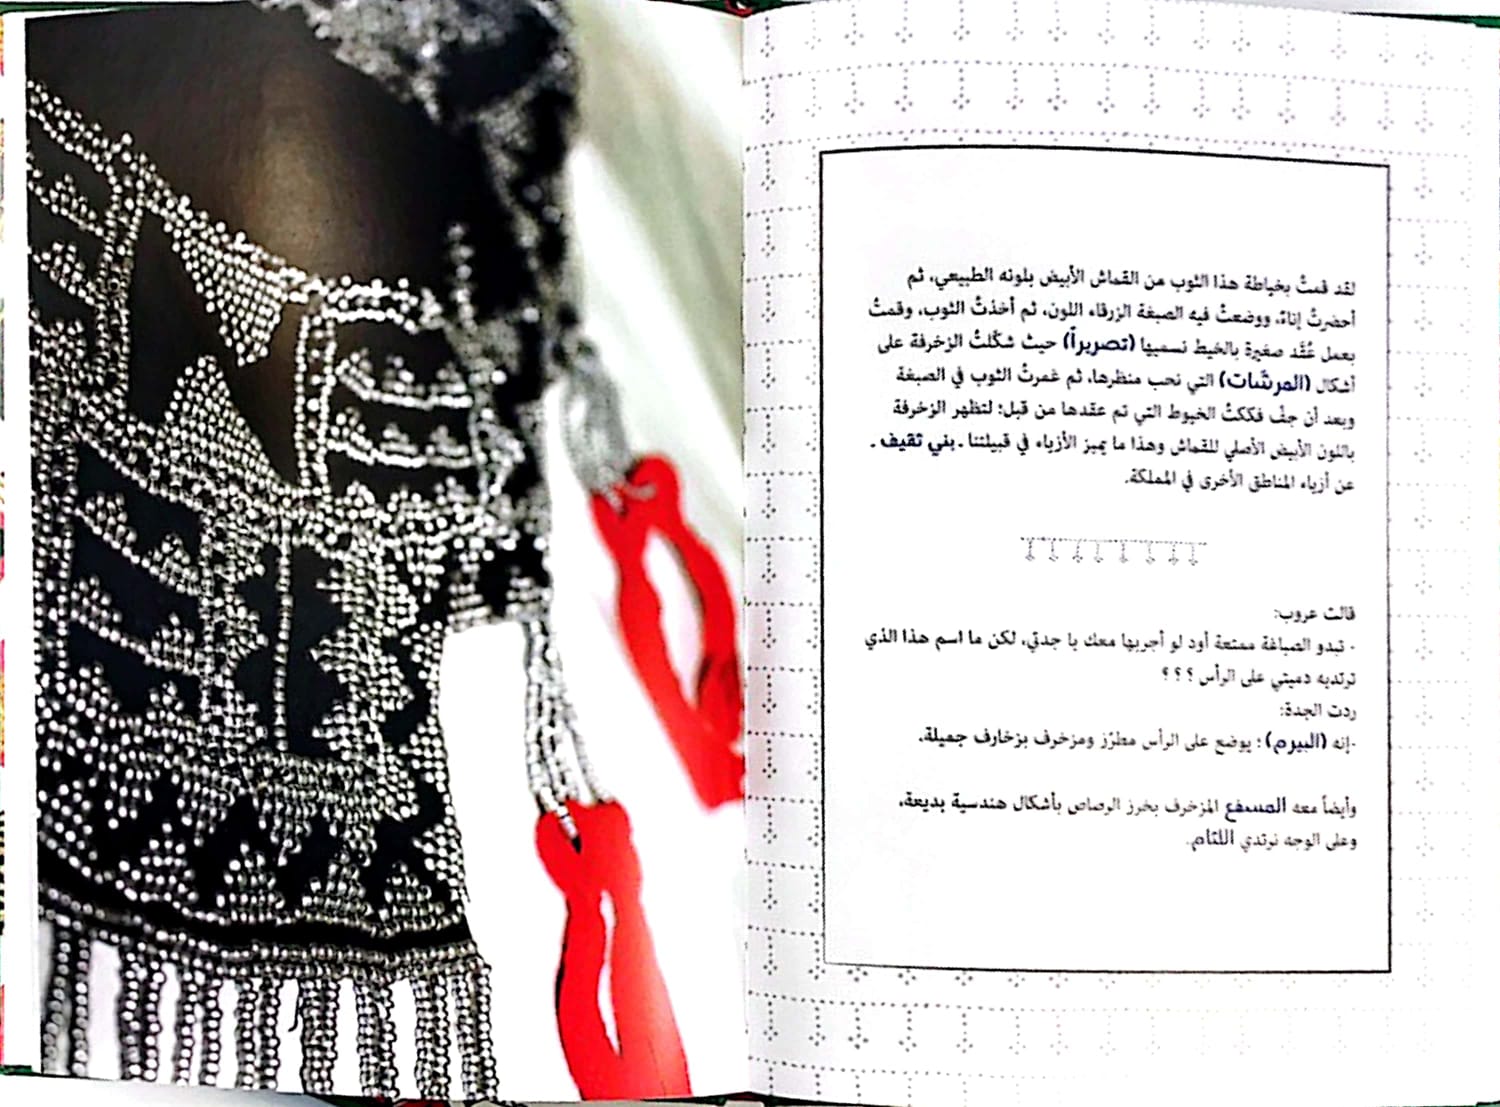 لقد قمتُ بخياطة هذا الثوب من القماش الأبيض بلونه الطبيعي، ثم
أحضرتُ إناءً، ووضعتُ فيه الصبغة الزرقاء اللون، ثم أخذتُ الثوب، وقمتُ
بعمل عُقَد صغيرة بالخيط نسميها (تصريراً) حيث شكّلتُ الزخرفة على
أشكال (المرشّات) التي نحب منظرها، ثم غمرتُ الثوب في الصبغة
وبعد أن جفّ فككتُ الخيوط التي تم عقدها من قبل؛ لتظهر الزخرفة
باللون الأبيض الأصلي للقماش وهذا ما يميز الأزياء في قبيلتنا ـ بني ثقيف ـ
عن أزياء المناطق الأخرى في المملكة.
قالت عروب:
- تبدو الصباغة ممتعة أود لو أجربها معك يا جدتي، لكن ما اسم هذا الذي
ترتديه دميتي على الرأس ؟ ؟ ؟
ردت الجدة:
-إنه (البيرم) ؛ يوضع على الرأس مطرّز ومزخرف بزخارف جميلة.
وأيضاً معه المسفع المزخرف بخرز الرصاص بأشكال هندسية بديعة،
وعلى الوجه نرتدي اللثام.